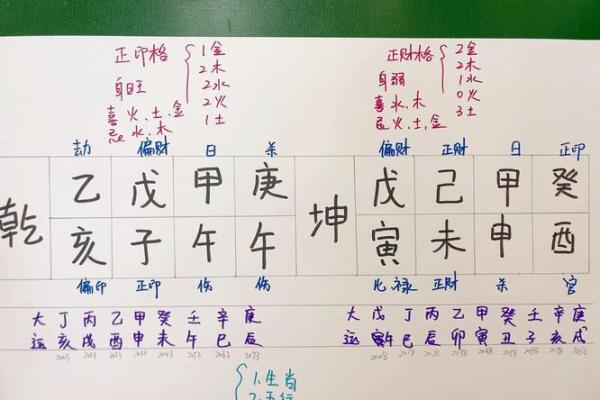 正印格
1金
2木
2水
2火
1土
身旺
喜 火、土、金
忌 水、木
正财格
2金
2木
1水
0火
3土
身弱
喜 水、木
忌 火、土、金
劫 偏财 日 杀
乾 乙 戊 甲 庚
亥 子 午 午
偏印 正印 伤 伤
偏财 正财 日 正印
坤 戊 己 甲 癸
寅 未 申 酉
比禄 正财 杀 官
大 丁 丙 乙 甲 癸 壬 辛 庚
运 亥 戌 酉 申 未 午 巳 辰
大 戊 丁 丙 乙 甲 癸 壬 辛 庚
运 午 巳 辰 卯 寅 丑 子 亥 戌
1.生肖
2.五行